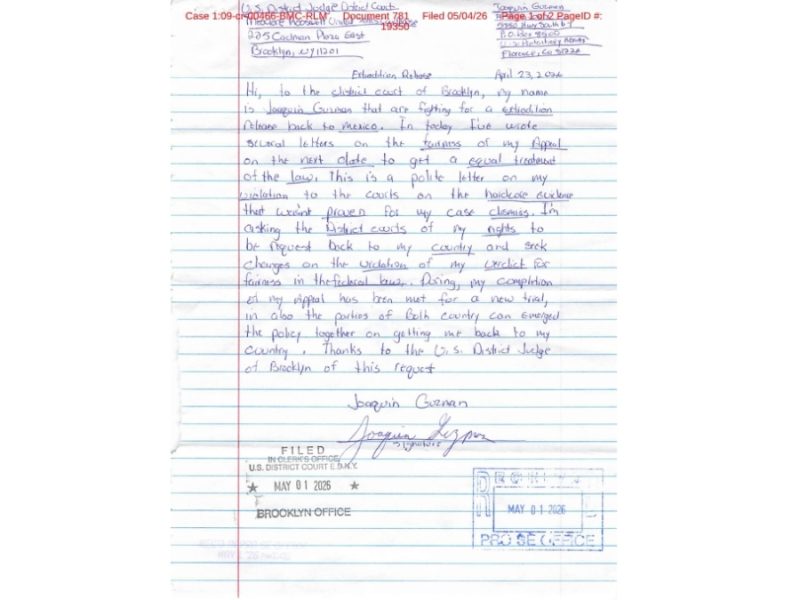 Case 1:09-cr-00466-BMC-RLM Document 781 Filed 05/04/26 Page 1 of 2 PageID #:
19350
U.S. District Judge District Courts
225 Cadman Plaza East
Brooklyn, NY 11201
Joaquin Guzman
P.O. Box 8500
Florence, Co
Extradition Release
April 23, 2026
Hi, to the district court of Brooklyn, my name
is Joaquin Guzman that are fighting for a extradition
release back to mexico. In today I've wrote
several letters on the fairness of my Appeal
on the next date to get a equal treatment
of the law. This is a polite letter on my
violation to the courts on the hardcore evidence
that wasn't proven for my case dismiss. I'm
asking the District courts of my rights to
be request back to my country and seek
changes on the violation of my verdict for
fairness in the federal law. During, my completion
of my Appeal has been met for a new trial,
in also the parties of Both country can emerged
the policy together on getting me back to my
country. Thanks to the U.S. District Judge
of Brooklyn of this request
Joaquin Guzman
Joaquin Guzman
signature
FILED
IN CLERK'S OFFICE
U.S. DISTRICT COURT E.D.N.Y.
★ MAY 01 2026 ★
BROOKLYN OFFICE
MAY 01 2026
PRO SE OFFICE